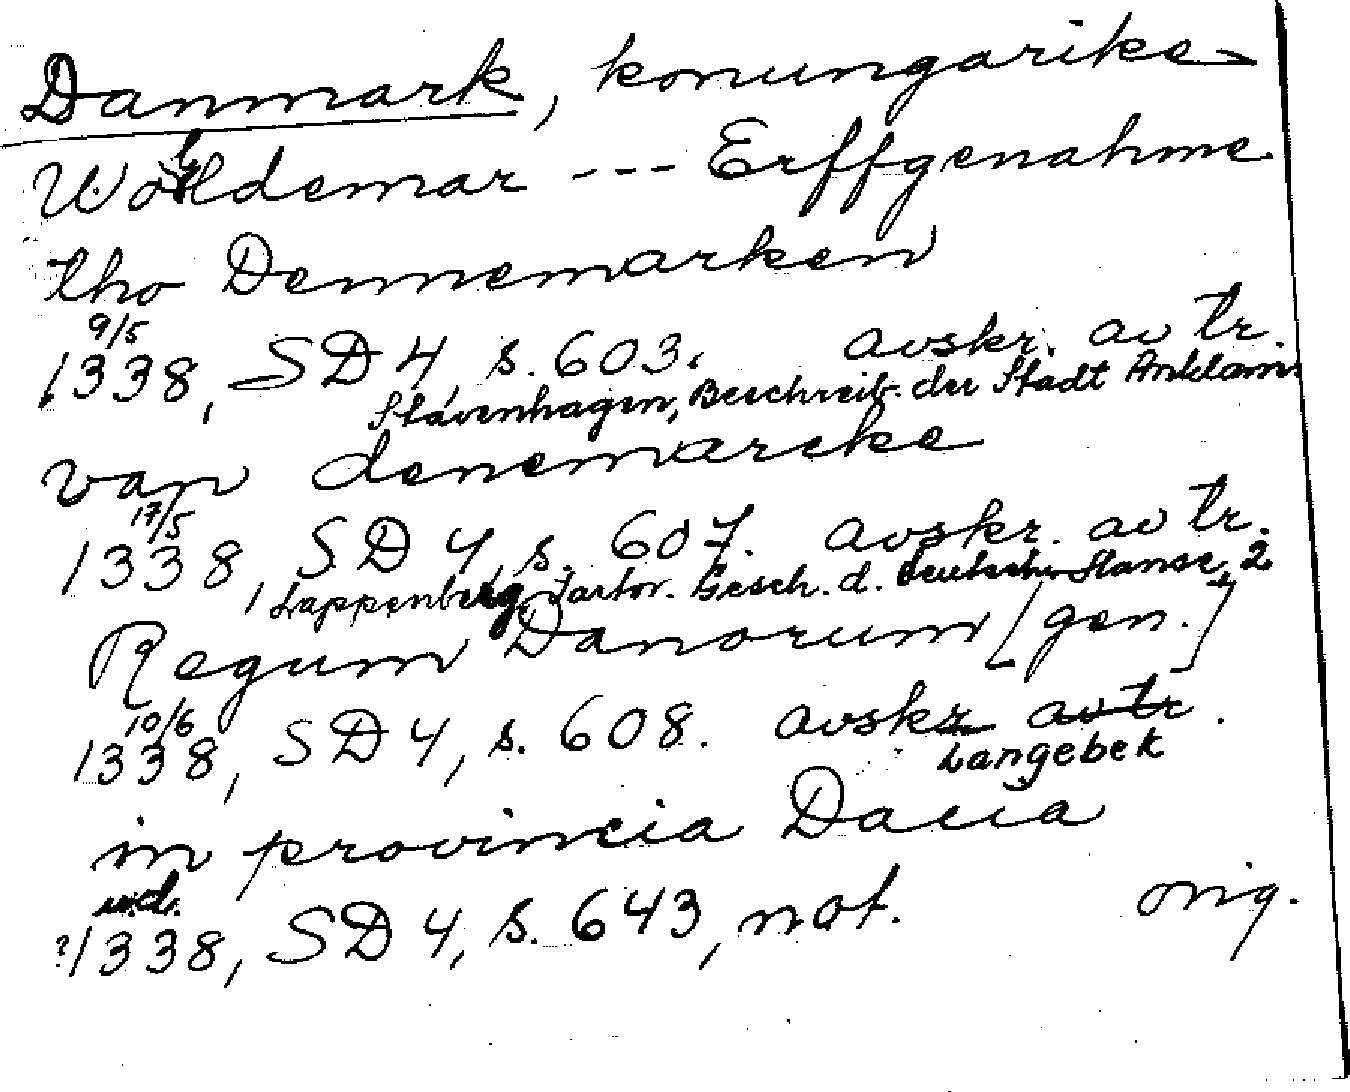 Danmark, konungarike
Woldemar --- Erffgenahme
tho Dennemarken
9/5
1338, SD 4, s. 603. avskr. av tr.
Stavenhagen, Beschreib. der Stadt Anklam
van denemarcke
17/5
1338, SD 4, s. 607. avskr. av tr.
Lappenberg, Gesch. d. deutschen Hanse, 2
Regum Danorum [gen.]
10/6
1338, SD 4, s. 608. avskr. av tr.
Langebek
in provincia Dacia
u.d.
?1338, SD 4, s. 643, not. orig.